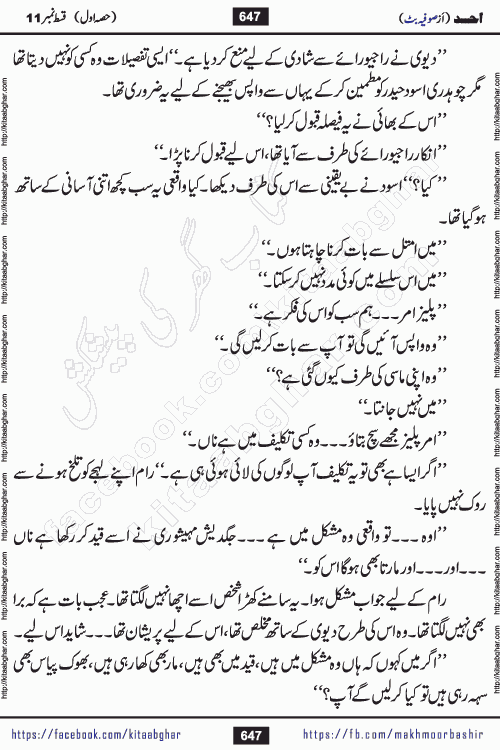 اَحسد (از صوفیہ بٹ)
647
(حصہ اول) قسط نمبر 11
’’دیوی نے راجیورائے سے شادی کے لیے منع کر دیا ہے۔‘‘ ایسی تفصیلات وہ کسی کو نہیں دیتا تھا
مگر چوہدری اسود حیدر کو مطمئین کر کے یہاں سے واپس بھیجنے کے لیے یہ ضروری تھا۔
’’اس کے بھائی نے یہ فیصلہ قبول کر لیا؟‘‘
’’انکار راجیورائے کی طرف سے آیا تھا، اس لیے قبول کرنا پڑا۔‘‘
’’کیا؟‘‘ اسود نے بے یقینی سے اس کی طرف دیکھا۔ کیا واقعی یہ سب کچھ اتنی آسانی کے ساتھ
ہو گیا تھا۔
’’میں امتل سے بات کرنا چاہتا ہوں۔‘‘
’’میں اس سلسلے میں کوئی مدد نہیں کر سکتا۔‘‘
’’پلیز امر۔۔۔ ہم سب کو اس کی فکر ہے۔‘‘
’’وہ واپس آئیں گی تو آپ سے بات کر لیں گی۔‘‘
’’وہ اپنی ماسی کی طرف کیوں گئی ہے؟‘‘
’’میں نہیں جانتا۔‘‘
’’امر پلیز مجھے سچ بتاؤ۔۔۔ وہ کسی تکلیف میں ہے ناں۔‘‘
’’اگر ایسا ہے بھی تو یہ تکلیف آپ لوگوں کی لائی ہوئی ہی ہے۔‘‘ رام اپنے لہجے کو تلخ ہونے سے
روک نہیں پایا۔
’’اوہ۔۔۔ تو واقعی وہ مشکل میں ہے۔۔۔ جگدیش مہیشوری نے اسے قید کر رکھا ہے ناں
۔۔۔ اور۔۔۔ اور مارتا بھی ہوگا اس کو۔‘‘
رام کے لیے جواب مشکل ہوا۔ یہ سامنے کھڑا شخص اسے اچھا نہیں لگتا تھا۔ عجب بات ہے کہ برا
بھی نہیں لگتا تھا۔ وہ اس کی طرح دیوی کے ساتھ مخلص تھا، اس کے لیے پریشان تھا۔۔۔ شاید اس لیے۔
’’اگر میں کہوں کہ ہاں وہ مشکل میں ہیں، قید میں بھی ہیں، مار بھی کھا رہی ہیں، بھوک پیاس بھی
سہہ رہی ہیں تو کیا کر لیں گے آپ؟‘‘
کتاب گھر کی پیشکش
facebook.com/kitaabghar
kitaabghar.com
http://kitaabghar.com
https://facebook.com/kitaabghar
647
https://fb.com/makhmoorbashir